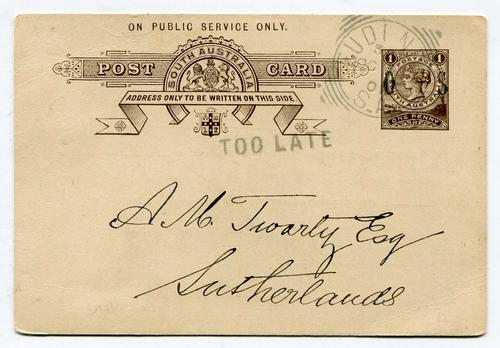 ON PUBLIC SERVICE ONLY.
SOUTH AUSTRALIA
POST CARD
ADDRESS ONLY TO BE WRITTEN ON THIS SIDE
1 POSTAGE 1
O S
SOUTH AUSTRALIA
ONE PENNY
UDIN
S.A
TOO LATE
A. M. Twartz Esq
Sutherlands